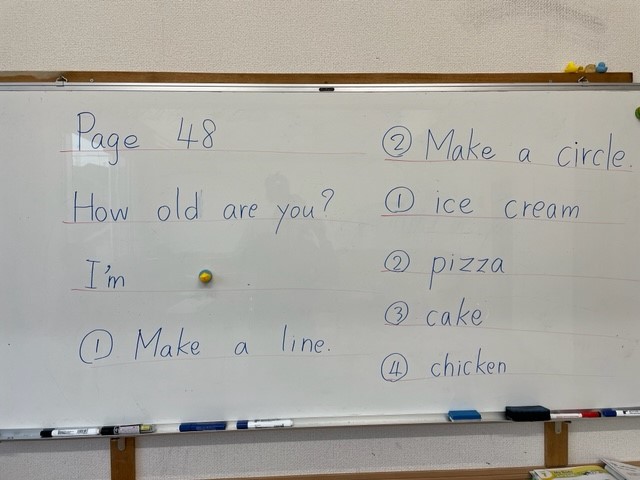 Page 48
How old are you?
I'm .
① Make a line.
② Make a circle.
① ice cream
② pizza
③ cake
④ chicken